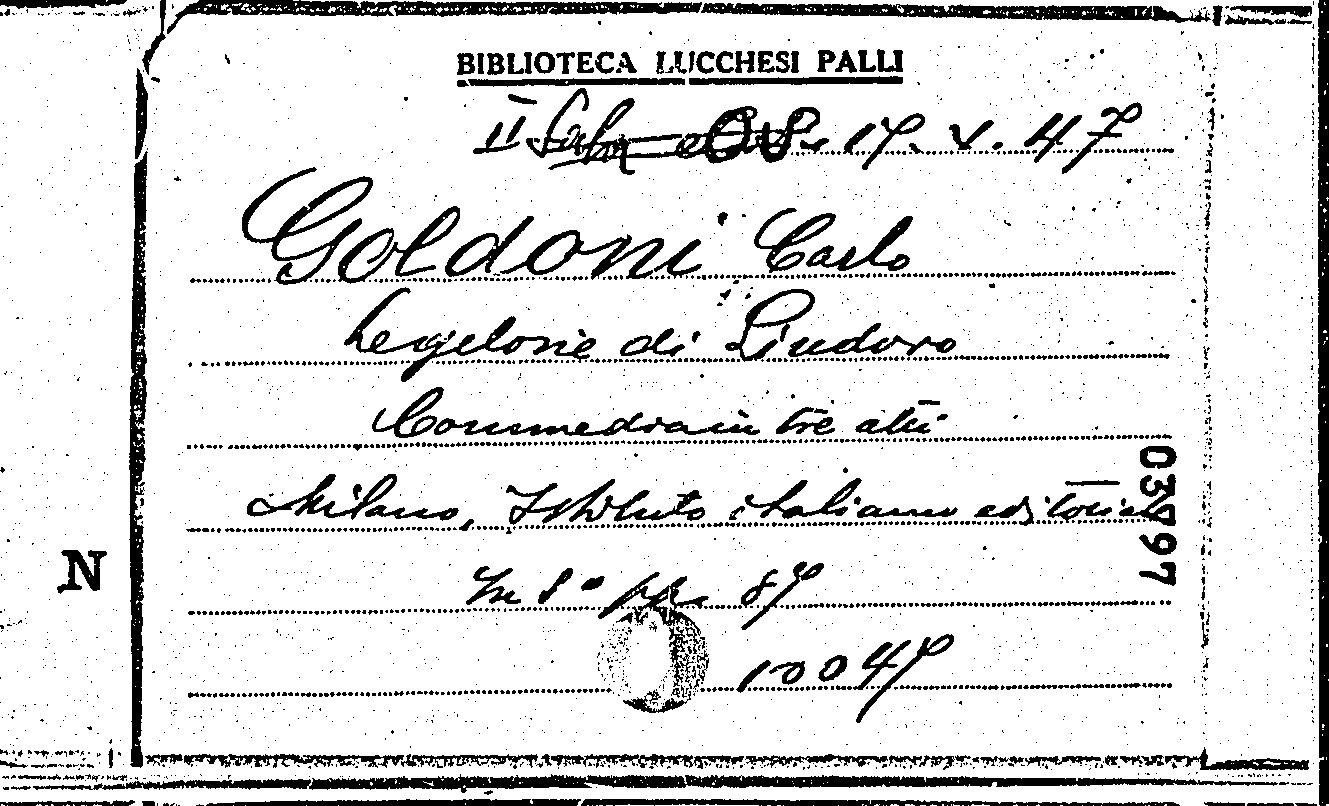 BIBLIOTECA LUCCHESI PALLI
II Sala 19. V. 47
Goldoni Carlo
Le gelosie di Lindoro
Commedia in tre atti
Milano, Istituto italiano editoriale
In 8° pp. 89
10049
03797
N